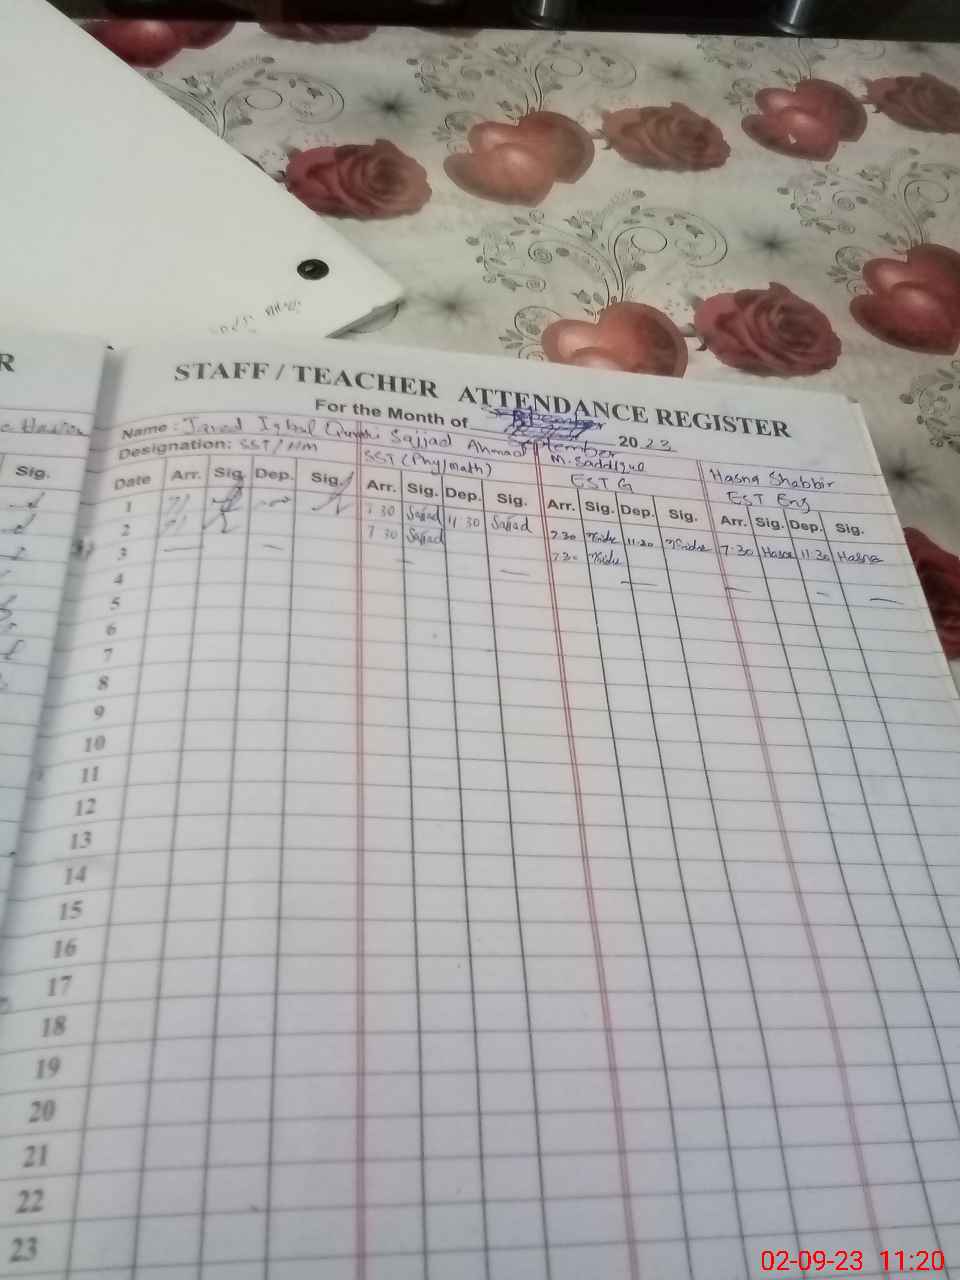 R
STAFF / TEACHER ATTENDANCE REGISTER
For the Month of September 2023
Name : Javed Iqbal Sajjad Ahmad M. Saddique Hasna Shabbir
Designation: SST / HM SST (Phy/math) EST G EST Eng
Sig.
Date Arr. Sig. Dep. Sig. Arr. Sig. Dep. Sig. Arr. Sig. Dep. Sig. Arr. Sig. Dep. Sig.
1 7 30 Sajjad 11 30 Sajjad 7:30 11:30 7:30 Hasna 11:30 Hasna
2 7 30 Sajjad 7:30
3
4
5
6
7
8
9
10
11
12
13
14
15
16
17
18
19
20
21
22
23
02-09-23 11:20